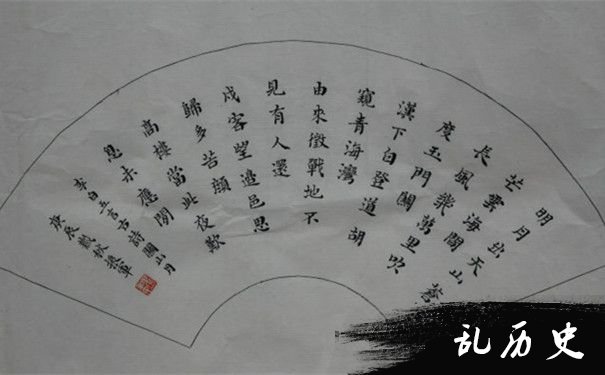 明月出天山蒼
茫雲海間
長風幾萬里吹
度玉門關
漢下白登道胡
窺青海灣
由來徵戰地不
見有人還
戍客望邊邑思
歸多苦顏
高樓當此夜歎
息未應閒
李白五言古詩關山月
庚辰
乱历史